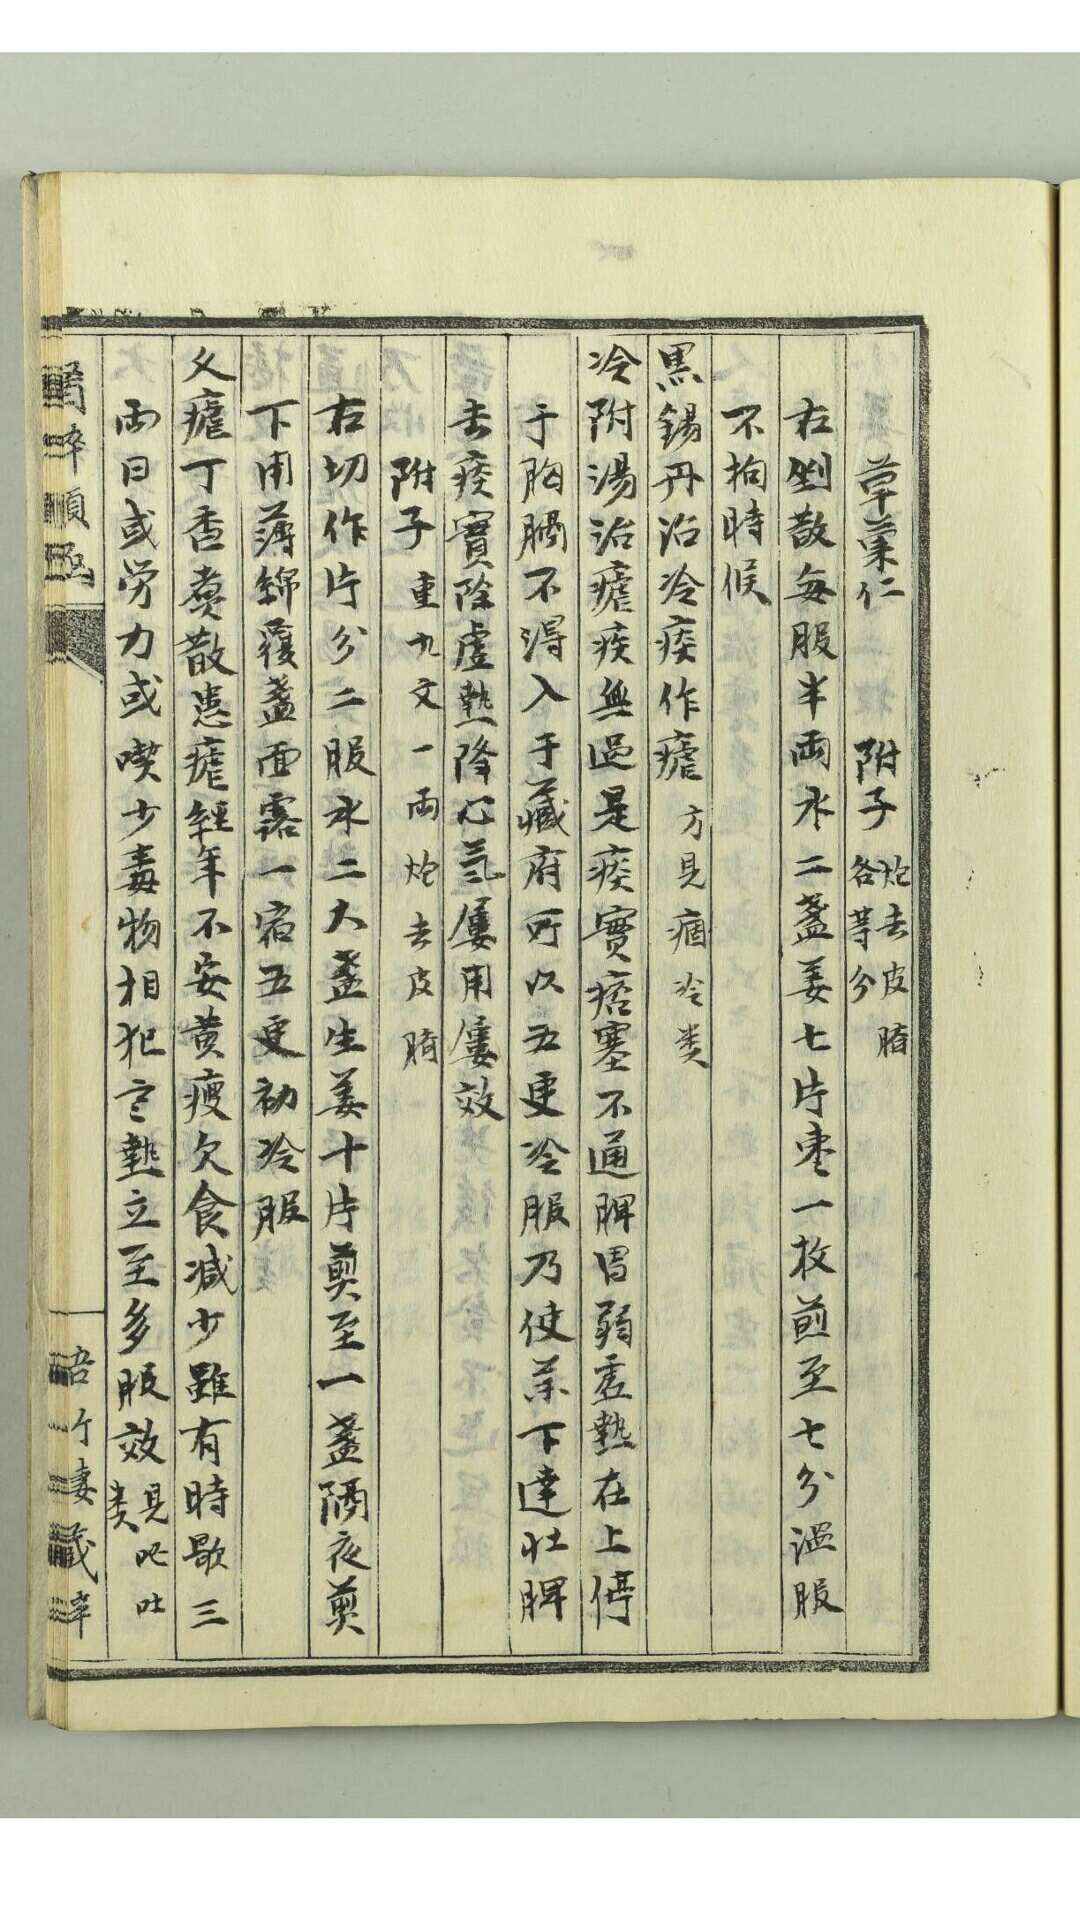 草菓仁　附子炮去皮臍各等分
右剉散每服半兩水二盞姜七片棗一枚煎至七分温服
不拘時候
黑錫丹治冷痰作瘧方見痼冷类
冷附湯治瘧疾無過是痰實痞塞不通脾胃弱虚熱在上停
于胸膈不得入于藏府所以五更冷服乃使药下達壮脾
去痰實除虚熱降心气屢用屢效
附子重九文一兩炮去皮臍
右切作片分二服水二大盞生姜十片煎至一盞隔夜煎
下用薄綿覆盞面露一宿五更初冷服
久瘧丁香煑散患瘧經年不安黄瘦欠食减少雖有時歇三
兩日或労力或喫少毒物相犯寒熱立至多服效見吐类